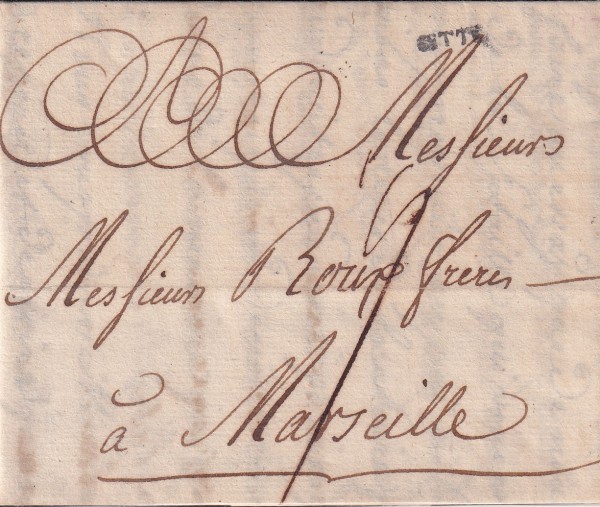 CETTE
Messieurs
Messieurs Roux freres
à Marseille